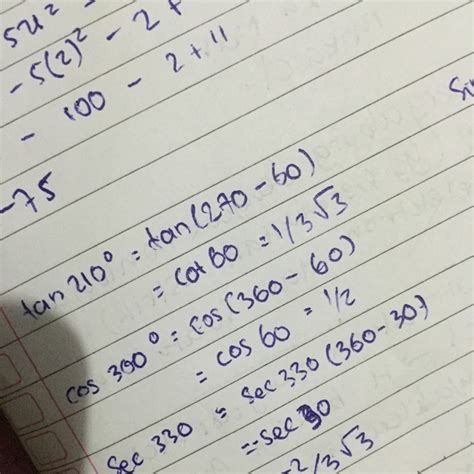 5u² -
- 5(2)² - 2 +
- 100 - 2 + 11
- 75
tan 210° = tan (270 - 60)
= cot 60 = 1/3 √3
cos 300° = cos (360 - 60)
= cos 60 = 1/2
sec 330 = sec 330 (360 - 30)
= sec 30
= 2/3 √3